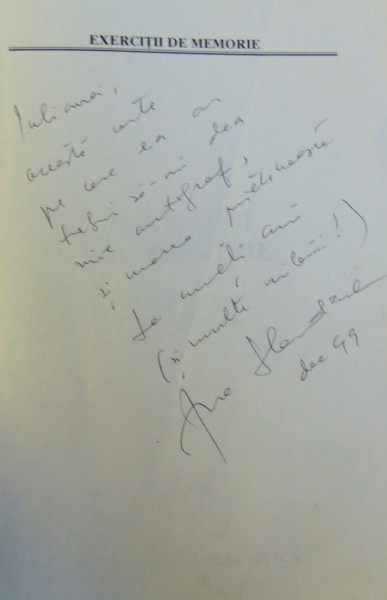 EXERCIȚII DE MEMORIE
Iulianei,
această carte
pe care ea ar
trebui să-mi dea
mie autograf,
și marea prietenească
La mulți ani
(și multe milenii!)
Ana
dec 99